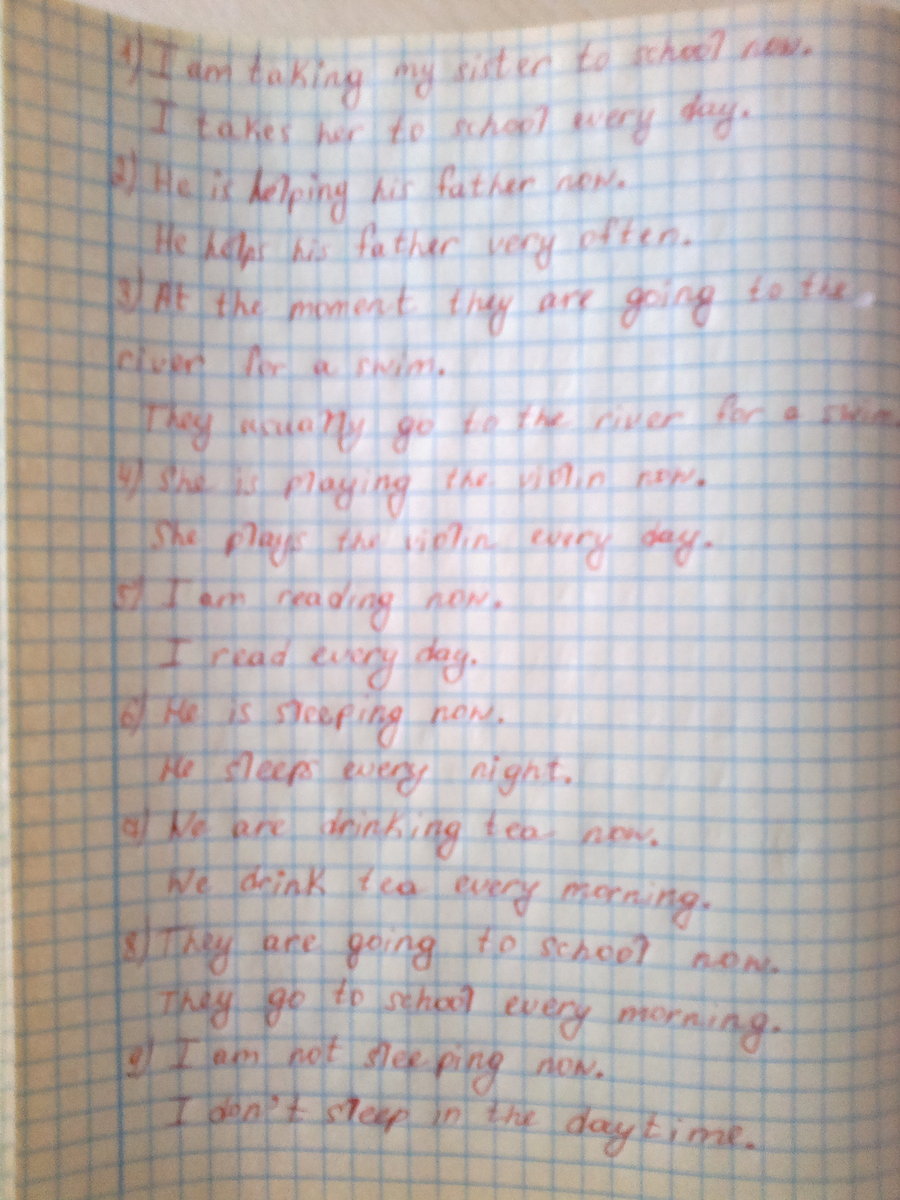 1) I am taking my sister to school now.
I takes her to school every day.
2) He is helping his father now.
He helps his father very often.
3) At the moment they are going to the
river for a swim.
They usually go to the river for a swim
4) She is playing the violin now.
She plays the violin every day.
5) I am reading now.
I read every day.
6) He is sleeping now.
He sleeps every night.
7) We are drinking tea now.
We drink tea every morning.
8) They are going to school now.
They go to school every morning.
9) I am not sleeping now.
I don't sleep in the daytime.